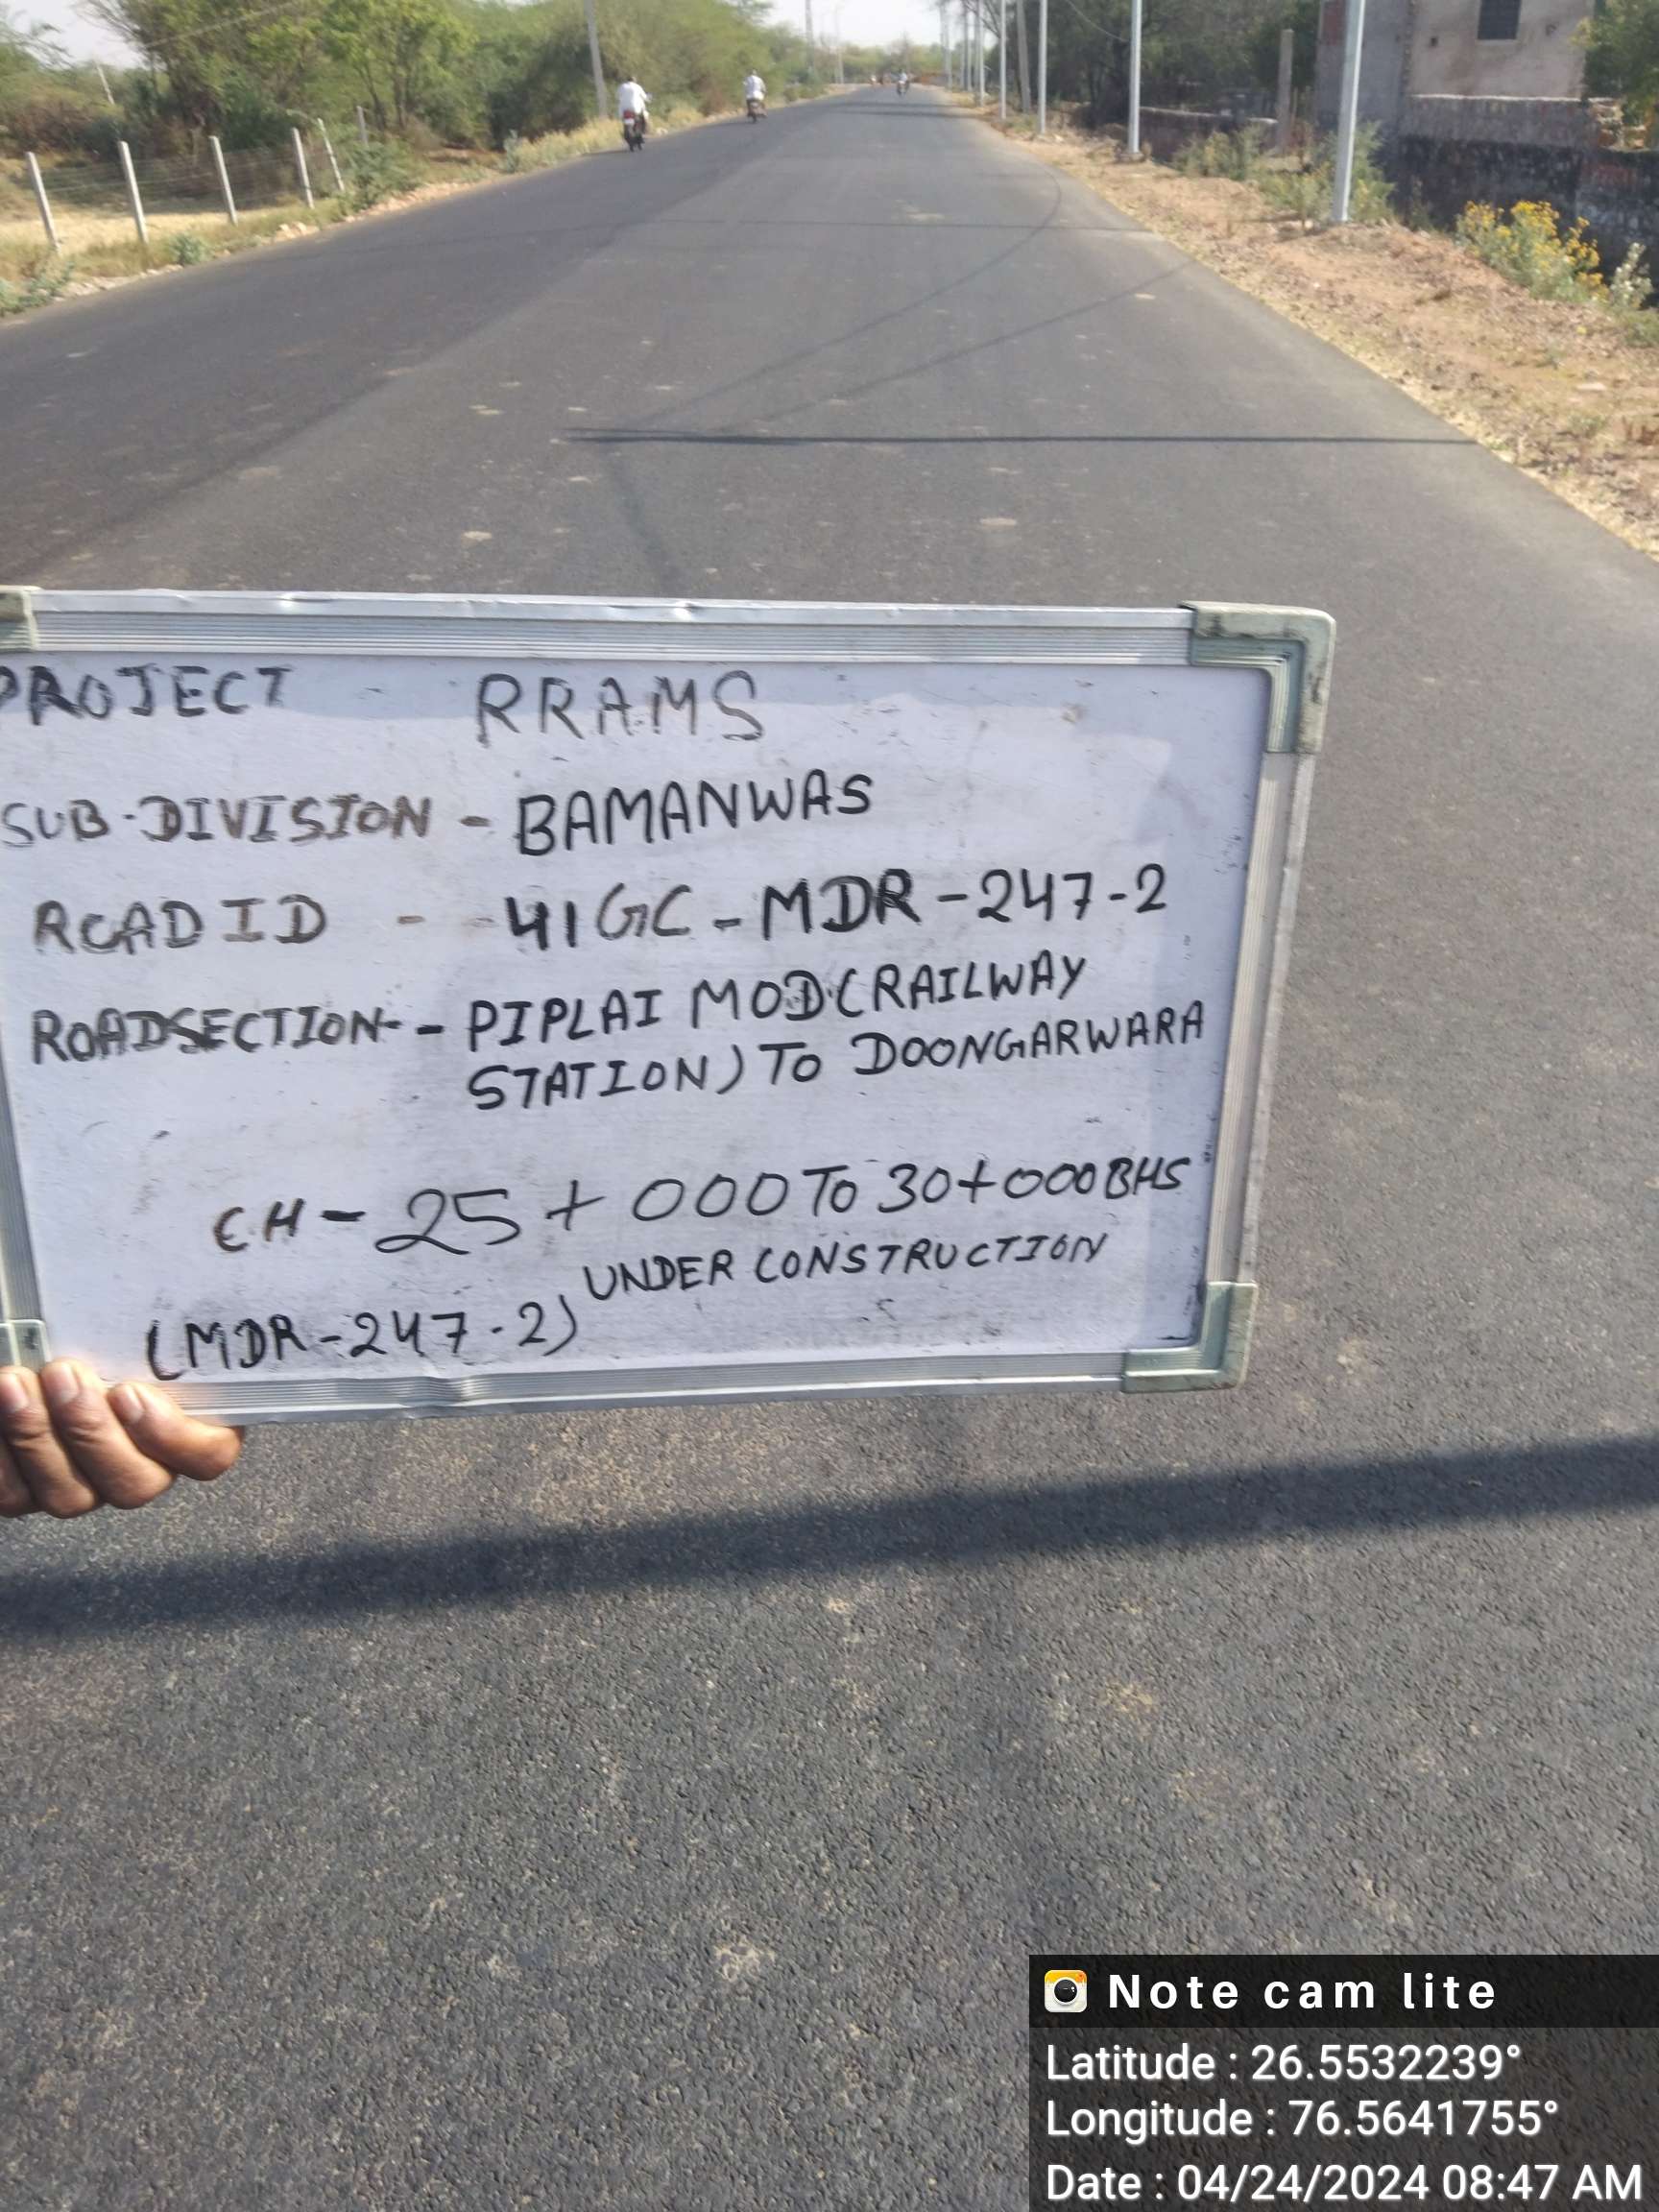 PROJECT - RRAMS
SUB-DIVISION - BAMANWAS
ROAD ID - - 41GC - MDR - 247-2
ROADSECTION - - PIPLAI MOD (RAILWAY
STATION) TO DOONGARWARA
CH - 25 + 000 TO 30+000 BHS
UNDER CONSTRUCTION
(MDR - 247-2)
Note cam lite
Latitude : 26.5532239°
Longitude : 76.5641755°
Date : 04/24/2024 08:47 AM